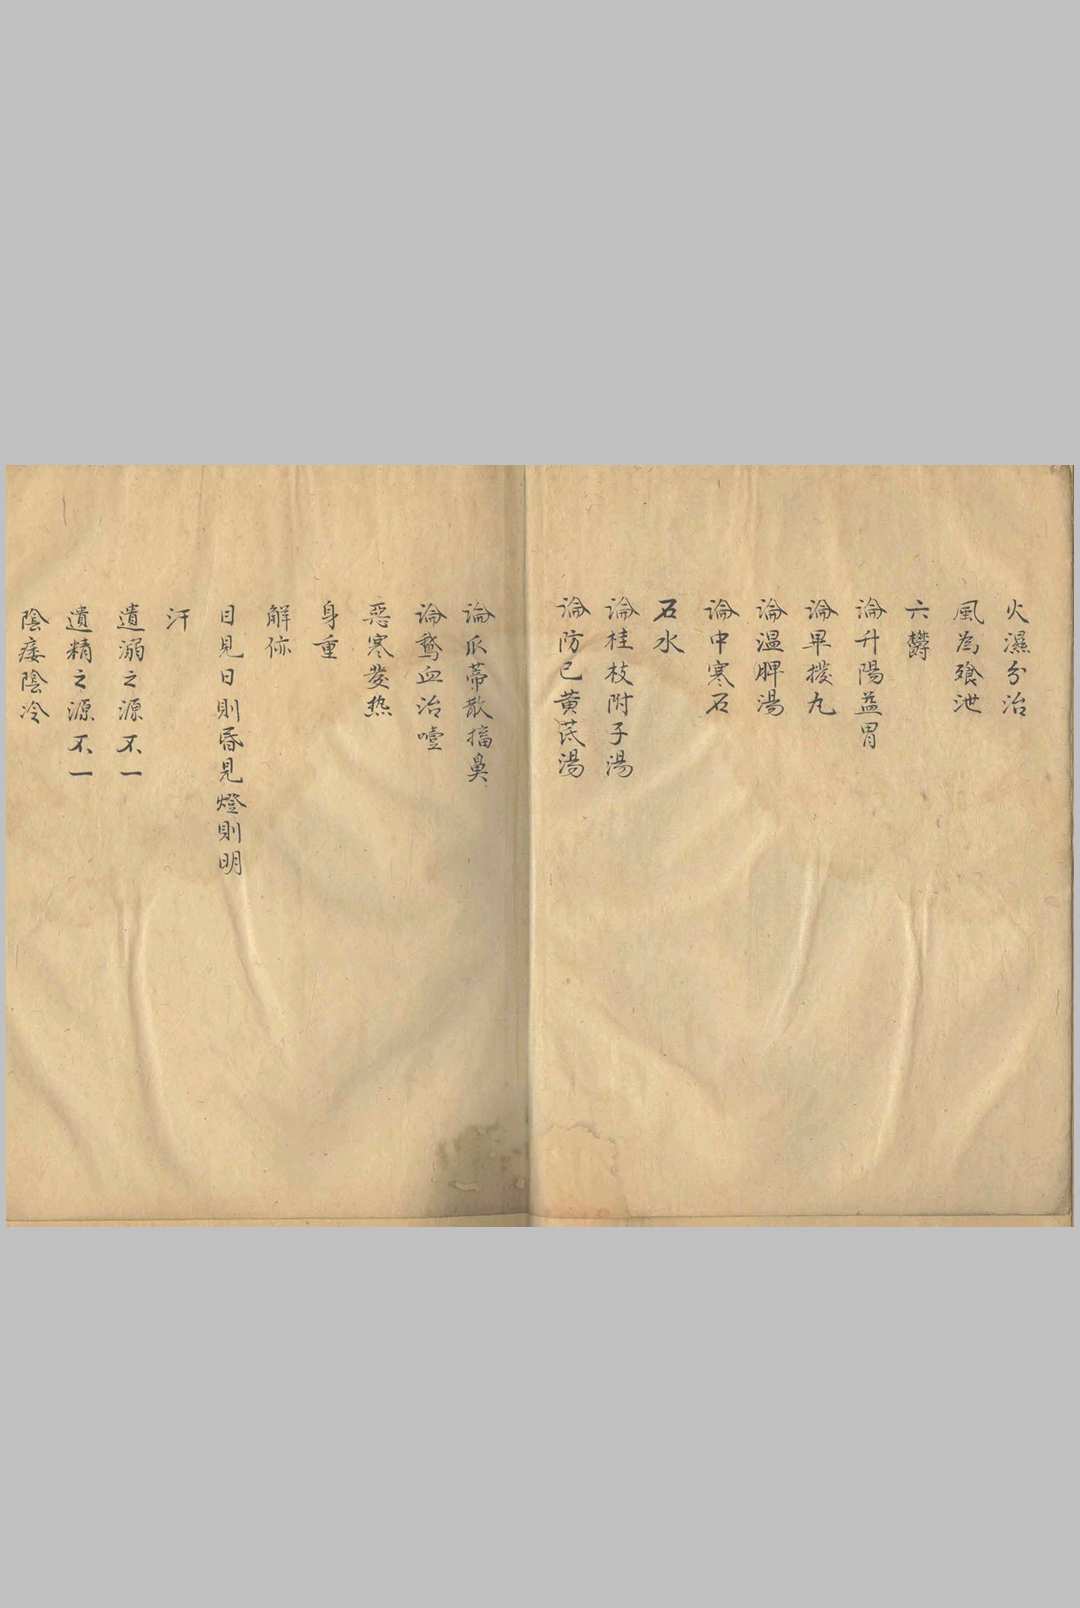 火濕分治
風為飱泄
六欝
論升陽益胃
論畢撥九
論温脾湯
論中寒石
石水
論桂枝附子湯
論防己黄茋湯
論瓜蒂散搐鼻
論鵞血治噎
惡寒發热
身重
解㑊
目見日則昏見燈則明
汗
遺溺之源不一
遺精之源不一
陰痿陰冷